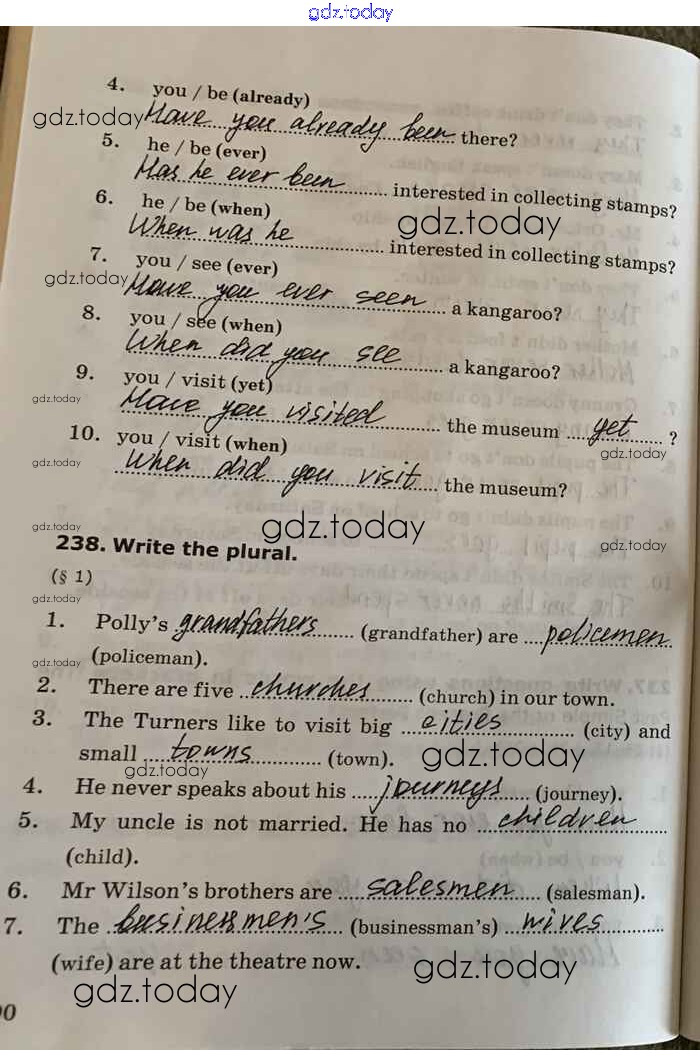 gdz.today
4. you / be (already)
gdz.today Have you already been there?
5. he / be (ever)
Has he ever been interested in collecting stamps?
6. he / be (when)
gdz.today
When was he interested in collecting stamps?
7. you / see (ever)
gdz.today
Have you ever seen a kangaroo?
8. you / see (when)
When did you see a kangaroo?
9. you / visit (yet)
gdz.today
Have you visited the museum yet ?
10. you / visit (when)
gdz.today
gdz.today
When did you visit the museum?
gdz.today
gdz.today
238. Write the plural.
gdz.today
(§ 1)
gdz.today
1. Polly's grandfathers (grandfather) are policemen
gdz.today
(policeman).
2. There are five churches (church) in our town.
3. The Turners like to visit big cities (city) and
small towns (town).
gdz.today
gdz.today
4. He never speaks about his journeys (journey).
5. My uncle is not married. He has no children
(child).
6. Mr Wilson's brothers are salesmen (salesman).
7. The businessmen's (businessman's) wives
(wife) are at the theatre now.
gdz.today
gdz.today